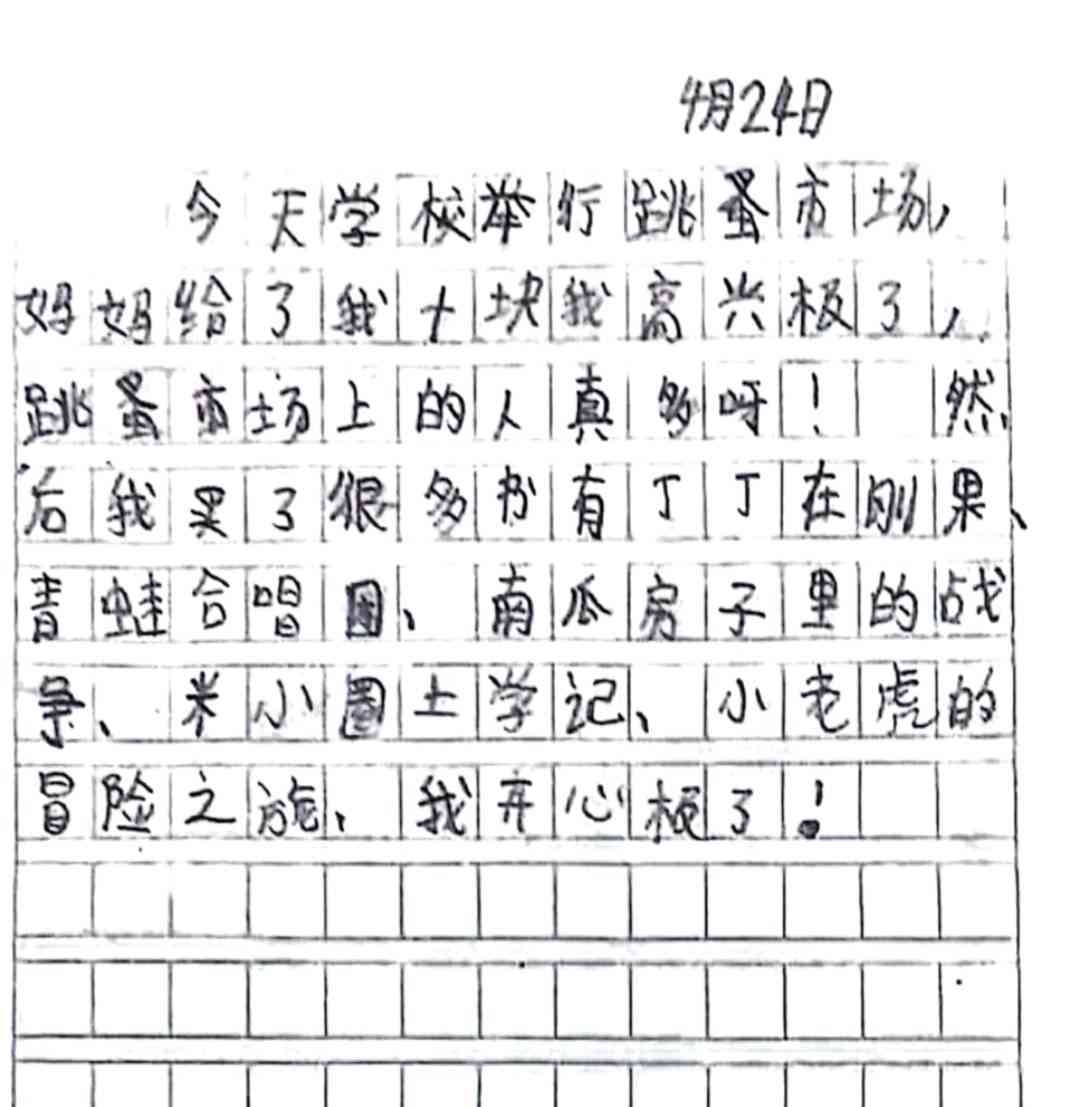 4月24日
今天学校举行跳蚤市场,
妈妈给了我十块我高兴极了,
跳蚤市场上的人真多呀! 然
后我买了很多书有丁丁在刚果、
青蛙合唱团、南瓜房子里的战
争、米小圈上学记、小老虎的
冒险之旅、我开心极了!